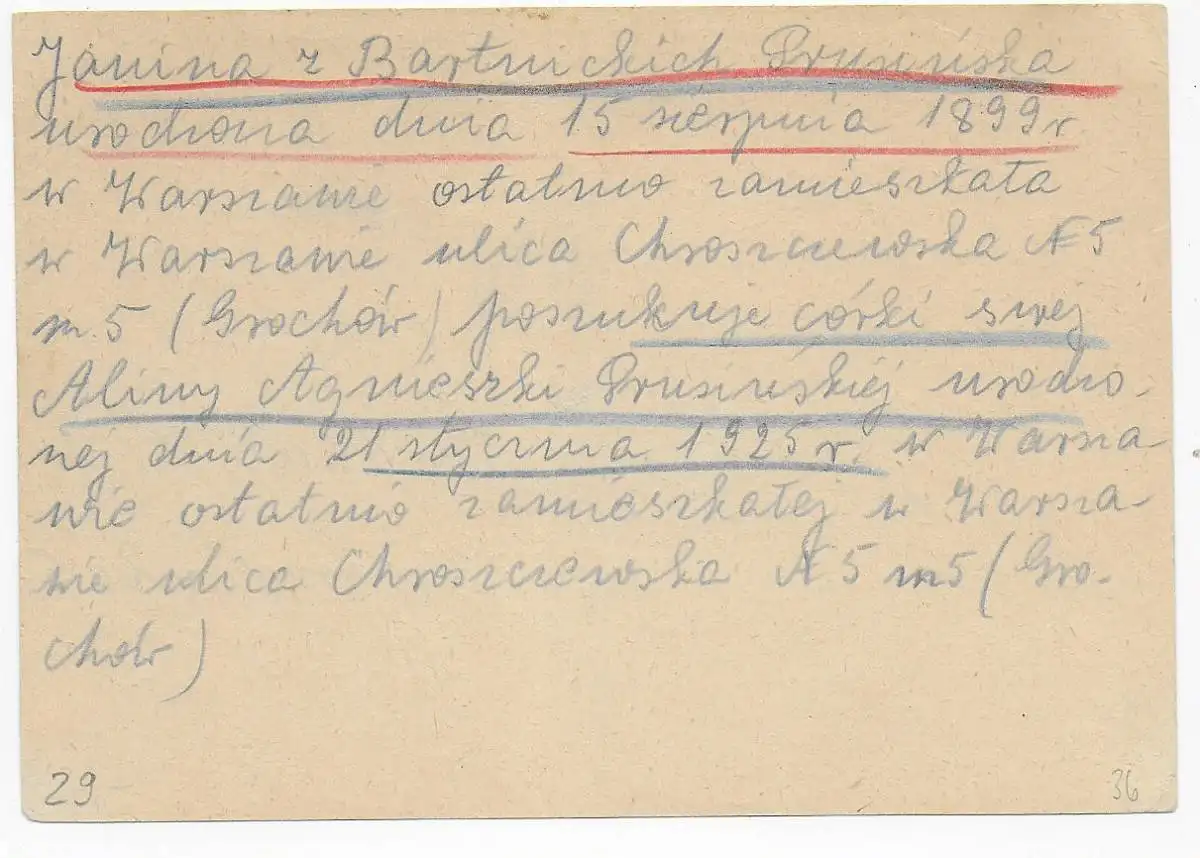 Janina z Bartnickich Prusińska
urodzona dnia 15 sierpnia 1899 r.
w Warszawie ostatnio zamieszkała
w Warszawie ulica Chroszczewska № 5
m. 5 (Grochów) poszukuje córki swej
Aliny Agnieszki Prusińskiej urodzo-
nej dnia 21 stycznia 1925 r. w Warsza-
wie ostatnio zamieszkałej w Warsza-
wie ulica Chroszczewska № 5 m 5 (Gro-
chów)
29
36